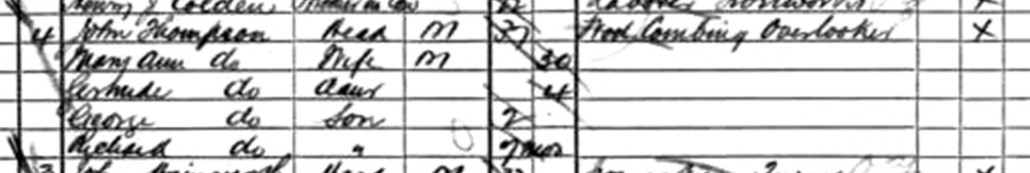 4 John Thompson Head M 37 Wool Combing Overlooker X
Mary Ann do Wife M 30
Gertrude do Daur 4
George do Son 2
Richard do " 7 mos
Head M